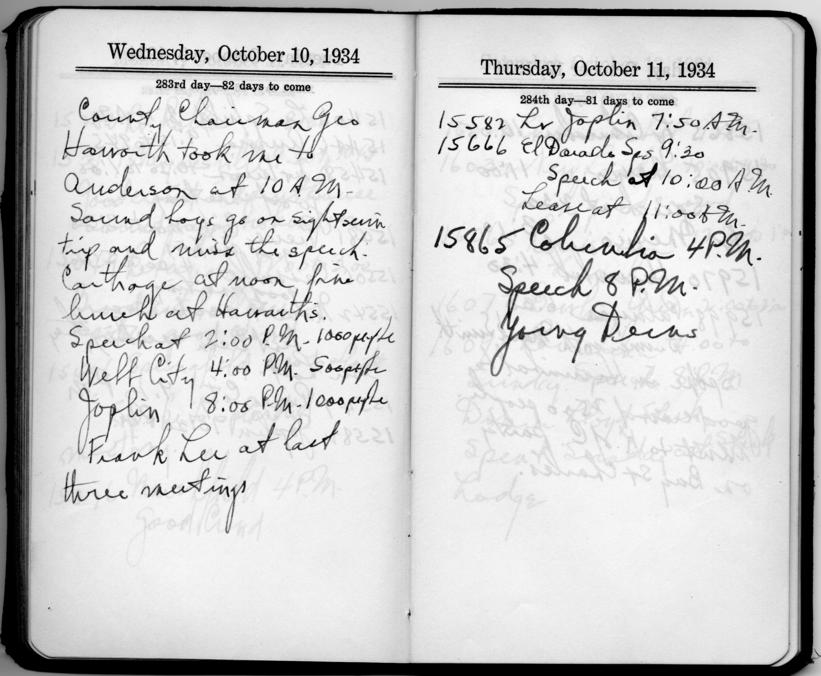 Wednesday, October 10, 1934
283rd day—82 days to come
County Chairman Geo
Haworth took me to
Anderson at 10 A.M.
Sound boys go on sightseein
trip and miss the speech.
Carthage at noon fine
lunch at Haworth's.
Speech at 2:00 P.M. 1000 people
Webb City 4:00 P.M. 500 people
Joplin 8:00 P.M. 1000 people
Frank Lee at last
three meetings
Thursday, October 11, 1934
284th day—81 days to come
15582 Lv Joplin 7:50 A.M.
15666 El Dorado Sps 9:30
Speech at 10:00 A.M.
Leave at 11:00 A.M.
15865 Columbia 4 P.M.
Speech 8 P.M.
Young Dems